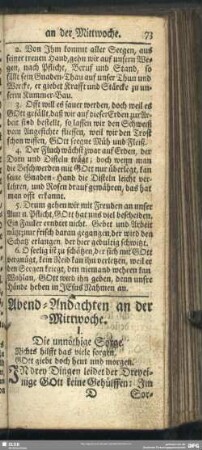 an der Mittwoche. 73
2. Von Ihm kommt aller Seegen, aus
seiner treuen Hand, gehn wir auf unsern We-
gen, nach Pflicht, Beruf und Stand, so
fällt sein Gnaden-Thau auf unser Thun und
Wercke, er giebet Krafft und Stärcke zu un-
serm Kummer-Bau.
3. Offt will es sauer werden, doch weil es
GOtt gefällt, daß wir auf dieser Erden zur Ar-
beit sind bestellt, so lassen wir den Schweiß
vom Angesichte fliessen, weil wir den Trost
schon wissen, GOtt seegne Müh und Fleiß.
4. Der Fluch wächst zwar auf Erden, der
Dorn und Disteln trägt; doch wenn man
die Beschwerden mit GOtt nur überlegt, kan
seine Gnaden-Hand die Disteln leicht ver-
nichten, und Rosen drauf
das hat man
offt erkannt.
5. Drum gehen wir mit Freuden an unser
Amt u. Pflicht, GOtt hat uns viel bescheiden,
Ein Fauler erndtet nicht. Gebet und Arbeit
müssen
den
Schatz erlangen, der
geduldig
6. O seelig ist zu schätzen, der sich mit GOtt
begnügt, kein Neid kan ihn verletzen, weil er
den Seegen kriegt, den niemand wehren kan.
Wohlan, GOtt wird ihn geben, denn unsre
Hände heben in JEsus Nahmen an.
Abend-Andachten an der
Mittwoche.
I.
Die unnöthige Sorge.
Nichts hilfft das viele sorgen,
GOtt giebt doch heut und morgen.
IN drey Dingen leidet der Dreyei-
nige GOtt keine Gehülffen: Im
D Sor-